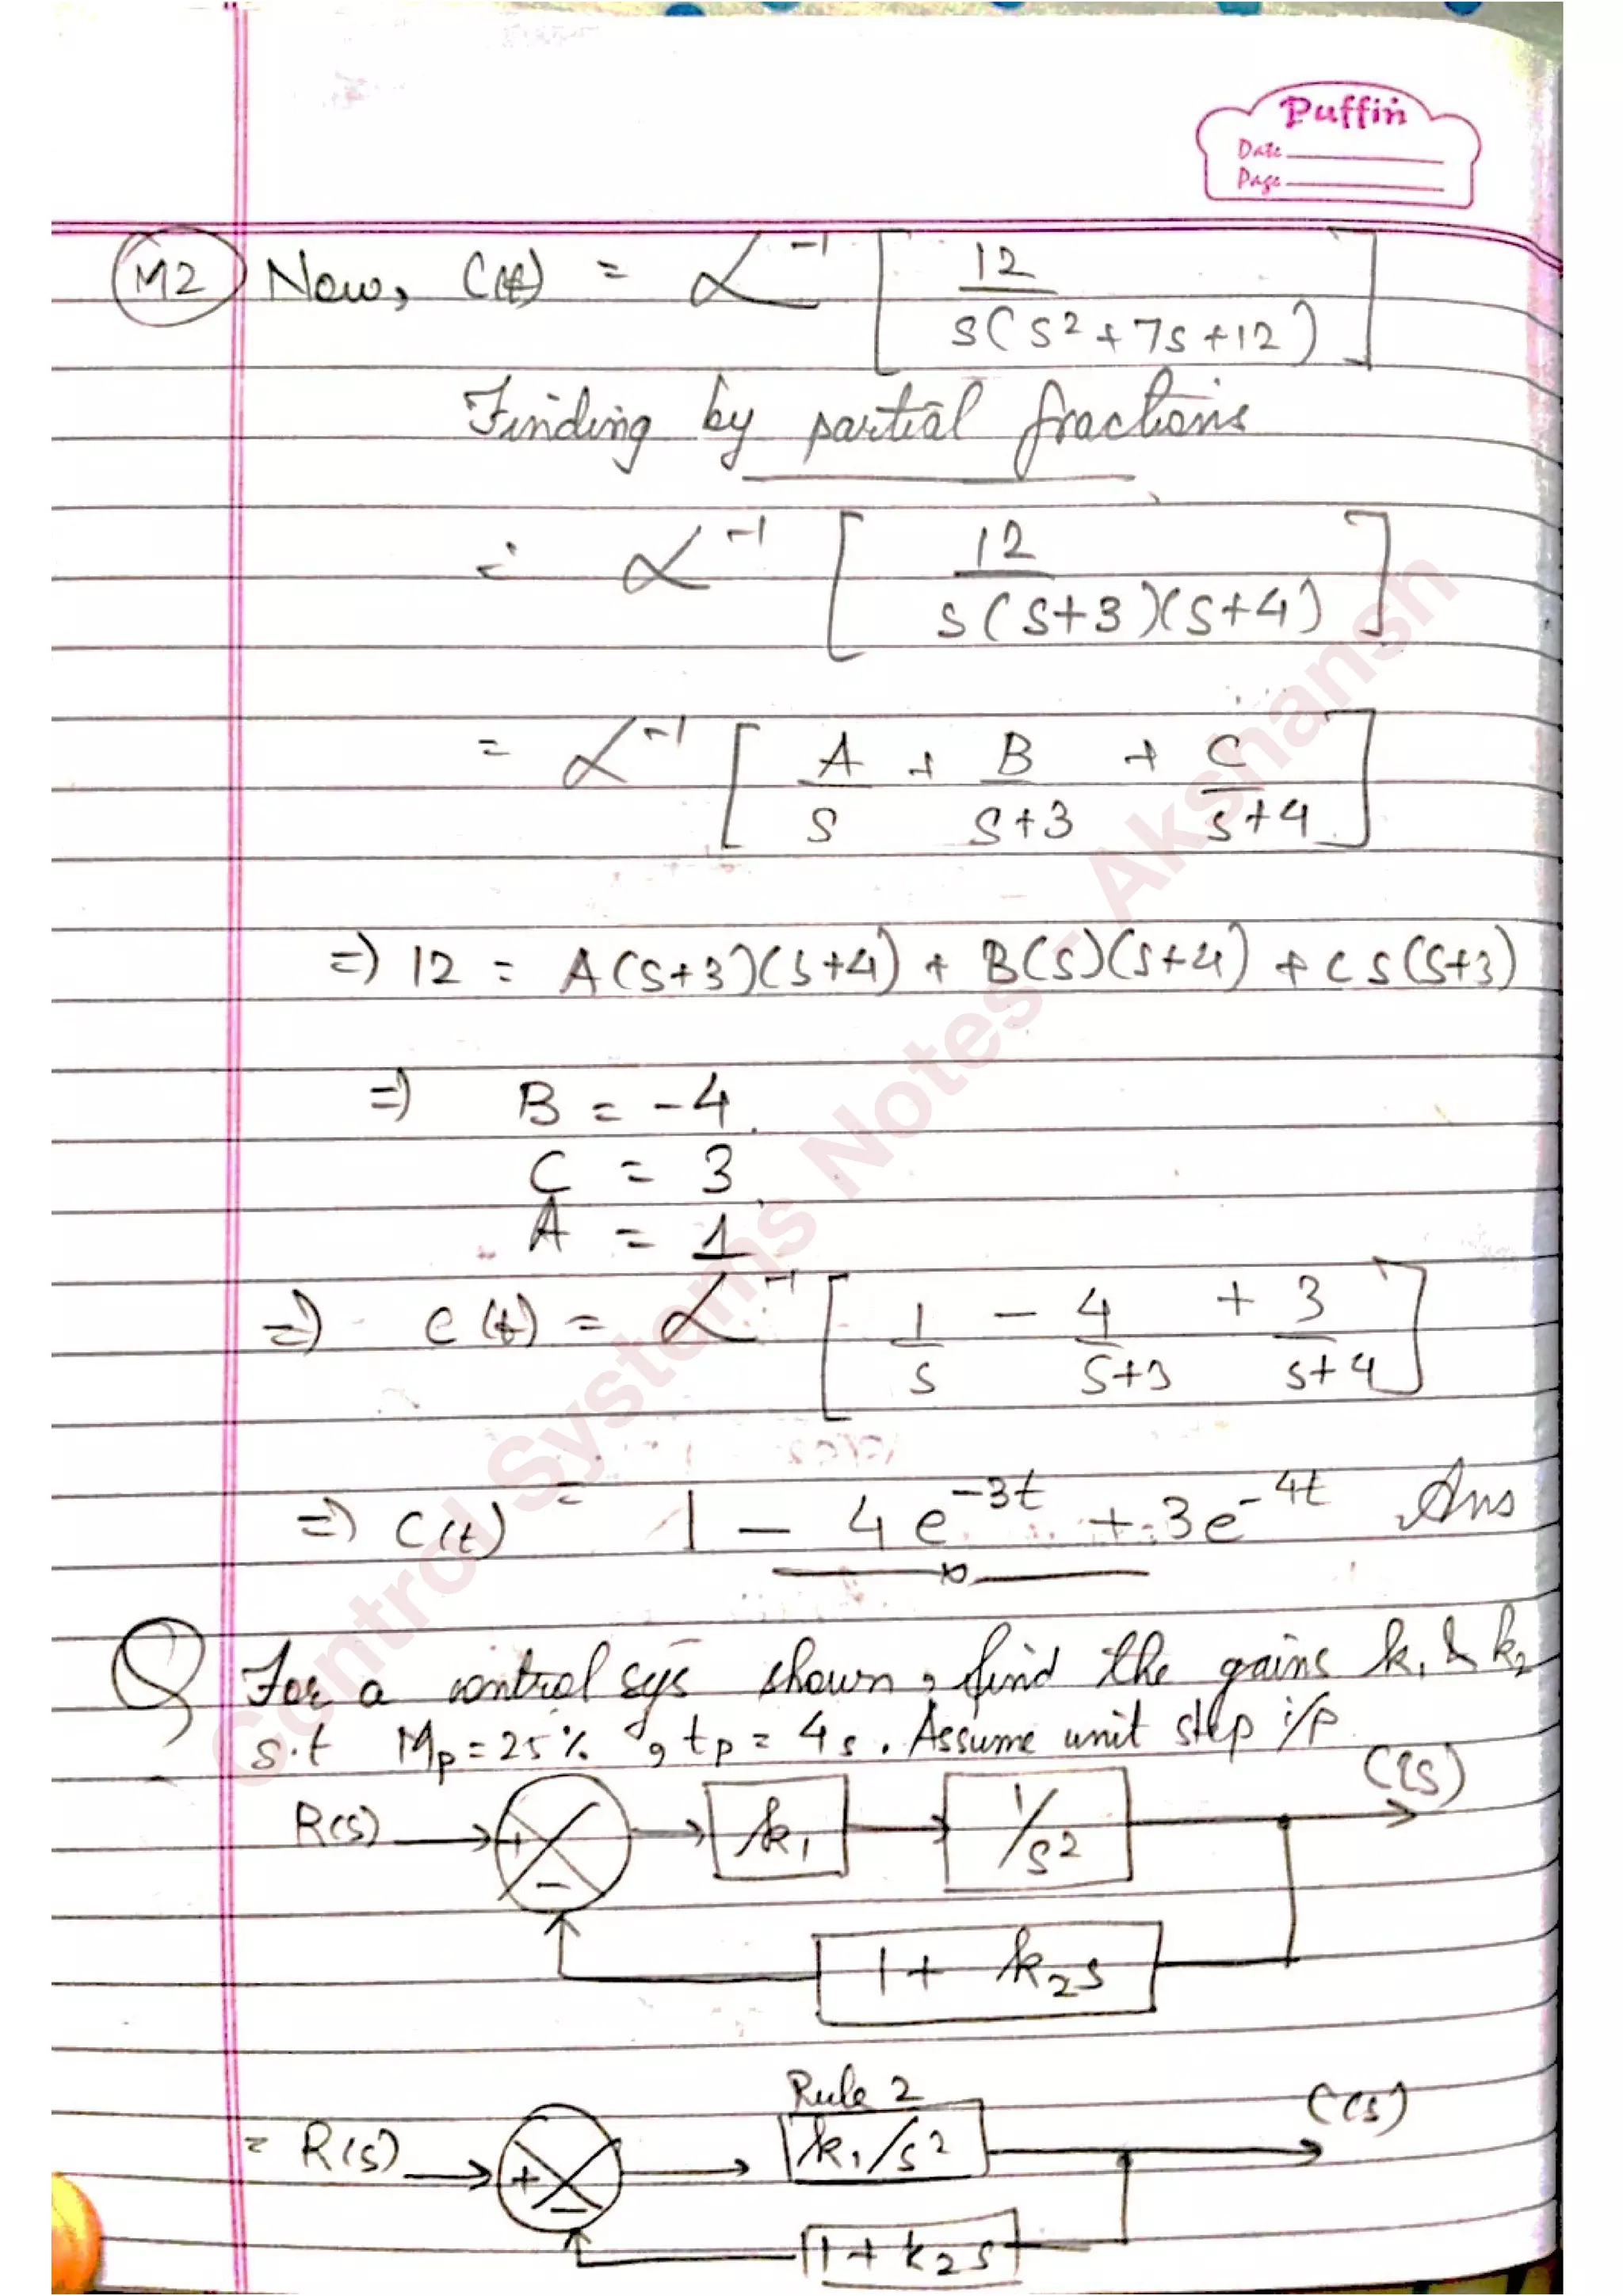 Puffin
Date
Page
M2 Now, C(t) = L⁻¹ [ 12 / s(s²+7s+12) ]
Finding by partial fractions
= L⁻¹ [ 12 / s(s+3)(s+4) ]
= L⁻¹ [ A/s + B/s+3 + C/s+4 ]
=) 12 = A(s+3)(s+4) + B(s)(s+4) + C s(s+3)
=) B = -4
C = 3
A = 1
=) c(t) = L⁻¹ [ 1/s - 4/s+3 + 3/s+4 ]
=) C(t) = 1 - 4e^-3t + 3e^-4t Ans
Q For a control sys shown, find the gains k₁ & k₂
s.t Mp = 25% , tp = 4s. Assume unit step i/p
C(s)
R(s) + - k₁ 1/s²
1 + k₂s
Rule 2
= R(s) + - k₁/s² C(s)
1 + k₂s
Control Systems Notes - Akshansh